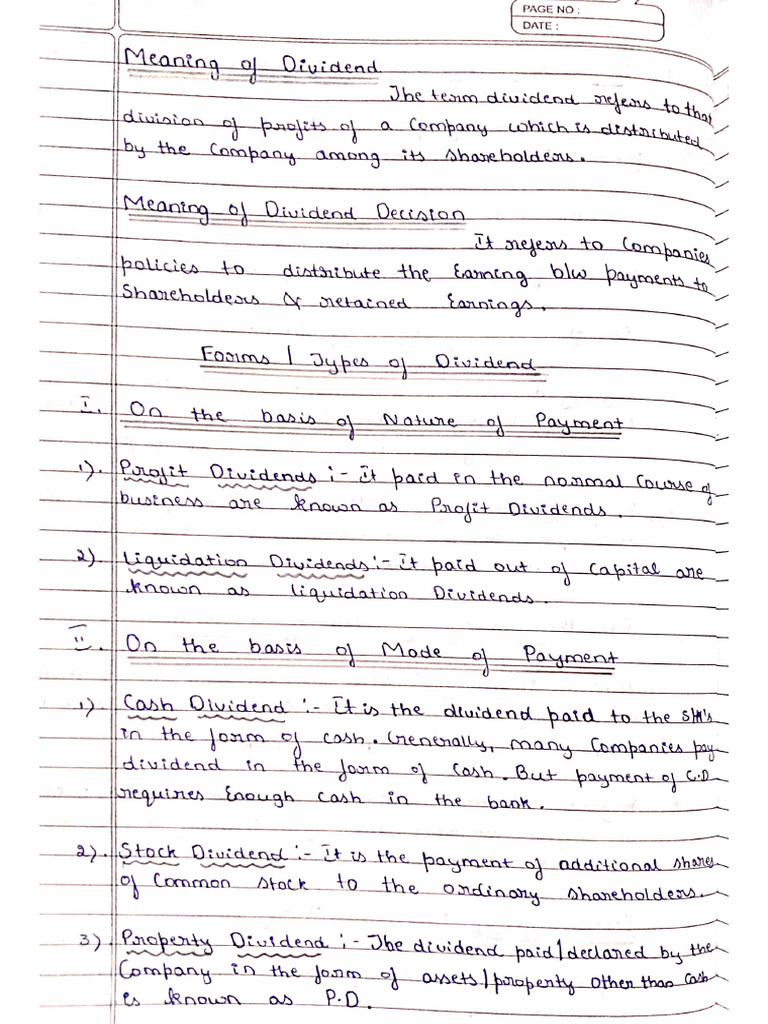 PAGE NO :
DATE :
Meaning of Dividend
The term dividend refers to that
division of profits of a Company which is distributed
by the Company among its shareholders.
Meaning of Dividend Decision
It refers to Companies
policies to distribute the Earning b/w payments to
Shareholders & retained Earnings.
Forms | Types of Dividend
I. On the basis of Nature of Payment
1). Profit Dividends :- It paid in the normal Course of
business are known as Profit Dividends.
2). Liquidation Dividends :- It paid out of Capital are
known as liquidation Dividends.
II. On the basis of Mode of Payment
1). Cash Dividend :- It is the dividend paid to the SH's
in the form of cash. Generally, many Companies pay
dividend in the form of Cash. But payment of C.D
requires Enough cash in the bank.
2). Stock Dividend :- It is the payment of additional shares
of Common stock to the ordinary shareholders.
3). Property Dividend :- The dividend paid/declared by the
Company in the form of assets/property other than Cash
is known as P.D.